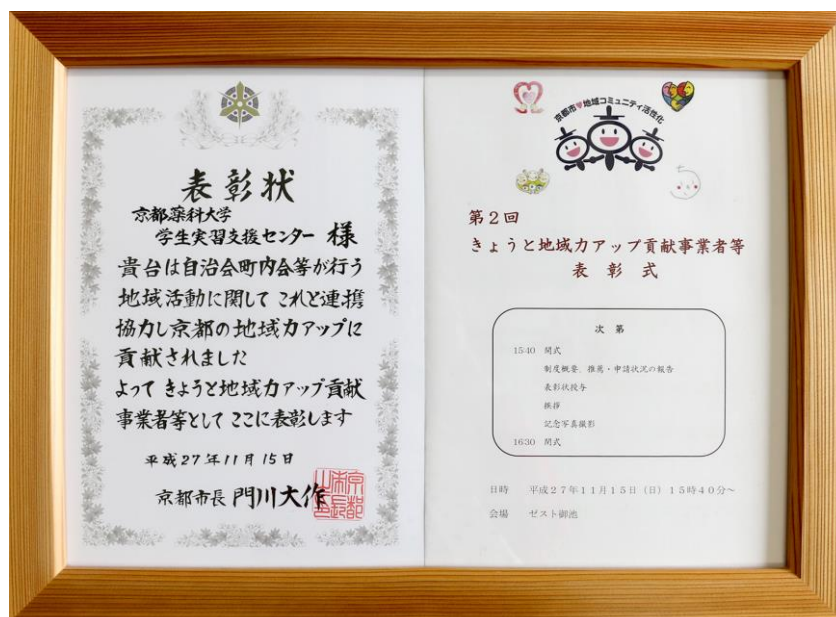 表彰状
京都薬科大学
学生実習支援センター 様
貴台は自治会町内会等が行う
地域活動に関して これと連携
協力し京都の地域力アップに
貢献されました
よって きょうと地域力アップ貢献
事業者等として ここに表彰します
平成27年11月15日
京都市長 門川大作
京都市長之印
京都市♥地域コミュニティ活性化
第2回
きょうと地域力アップ貢献事業者等
表彰式
次第
15:40 開式
制度概要、推薦・申請状況の報告
表彰状授与
挨拶
記念写真撮影
16:30 閉式
日時 平成27年11月15日(日)15時40分~
会場 ゼスト御池